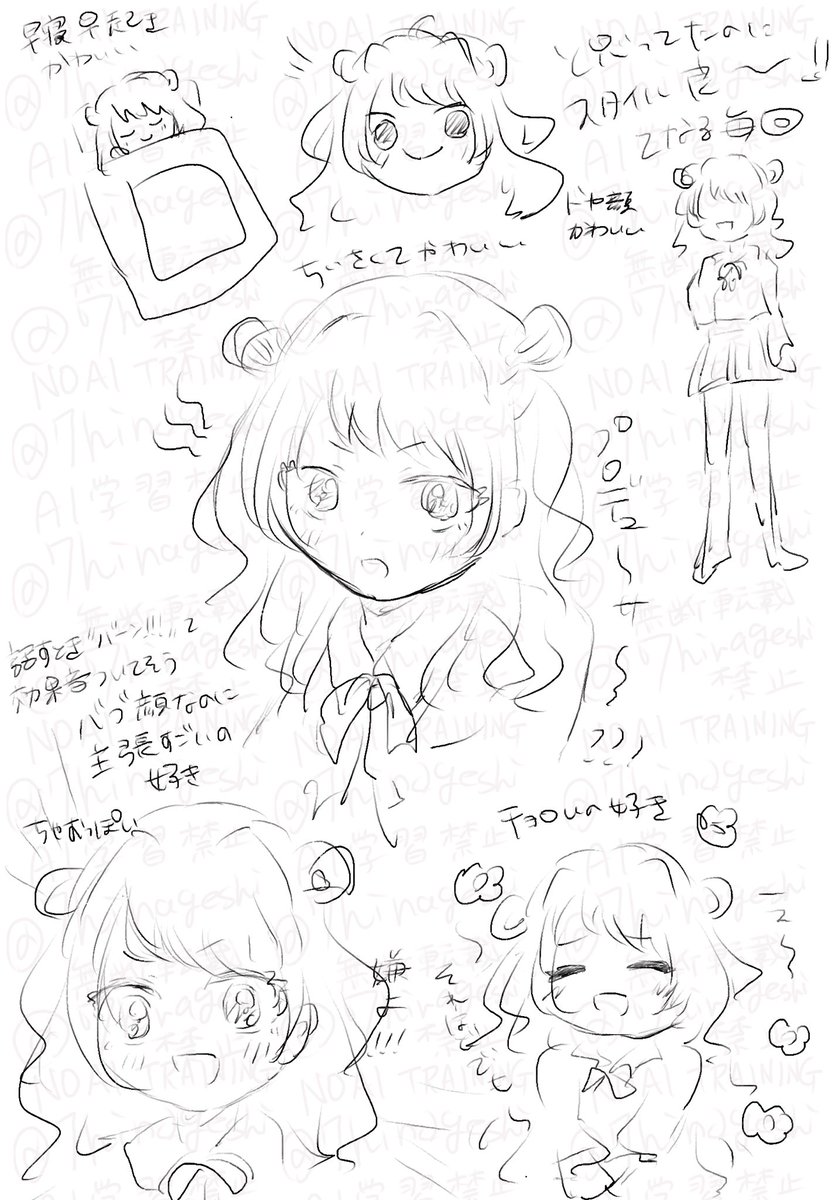 早寝早起き
かわいい
と思ってたのに
スタイル良〜!!
ドヤ顔
かわいい
ちいさくてかわいい
プロデュ〜サ〜〜
話すとき"バーン!!!"て
効果音ついてそう
バブ顔なのに
主張すごいの
好き
ちゃむっぽい
チョロいの好き
嫌よ!!!
え〜
それほどでも
NO AI TRAINING
@7hinageshi
AI学習禁止
無断転載
禁止